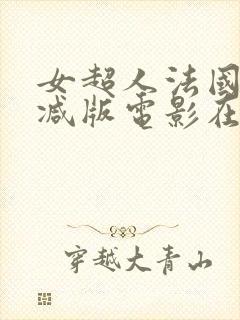 女超人法國
减版電影在
穿越大青山